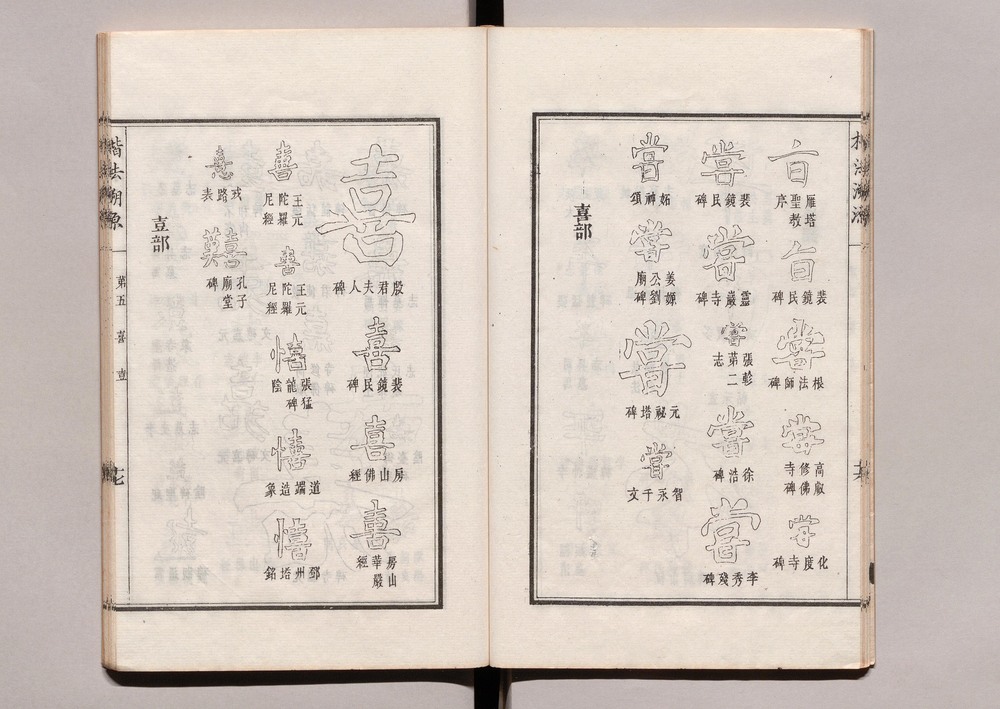 旨 雁塔聖教序
旨 裴鏡民碑
嘗 根法師碑
嘗 高叡修佛寺碑
嘗 化度寺碑
嘗 裴鏡民碑
嘗 靈巖寺碑
嘗 張彭第二志
嘗 徐浩碑
嘗 李秀殘碑
嘗 妬神頌
嘗 姜嫄公劉廟碑
嘗 元祕塔碑
嘗 智永千文
喜部
喜 殷君夫人碑
喜 裴鏡民碑
喜 房山佛經
喜 房山華嚴經
喜 王元陀羅尼經
喜 王元陀羅尼經
憘 張猛龍碑陰
憘 道端造象
憘 鄧州塔銘
憙 戎路表
孔子廟堂碑
壴部
楷法溯源 第五 喜 壴